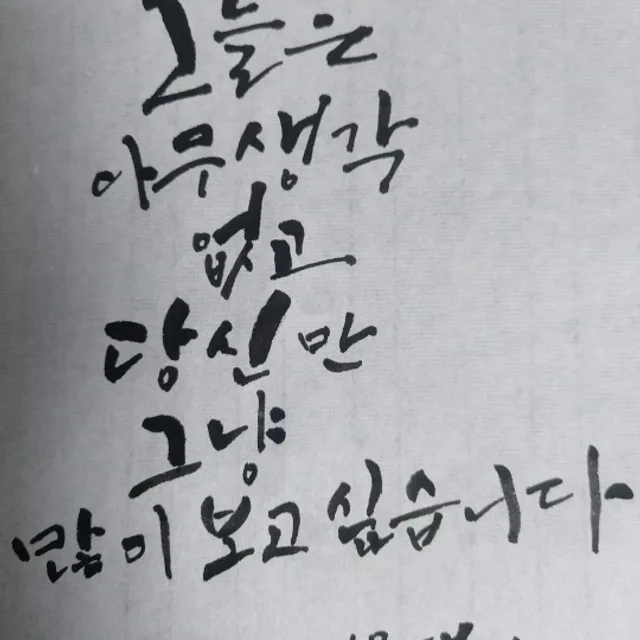 아무생각
없고
당신만
그냥
많이 보고 싶습니다